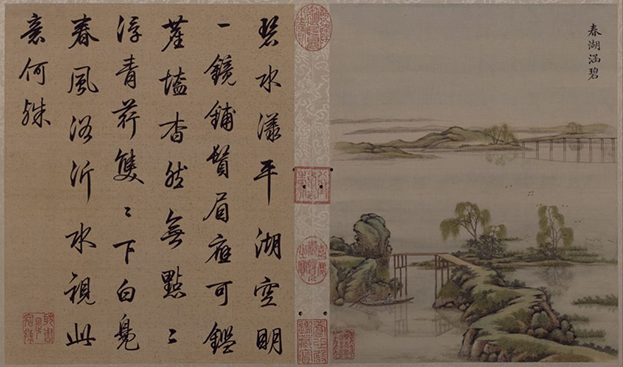 春湖涵碧
碧水漾平湖空明
一鏡鋪鬚眉應可鑑
塵壒杳然無點〻
浮青荇雙〻下白鳧
春風浴沂水視此
意何殊